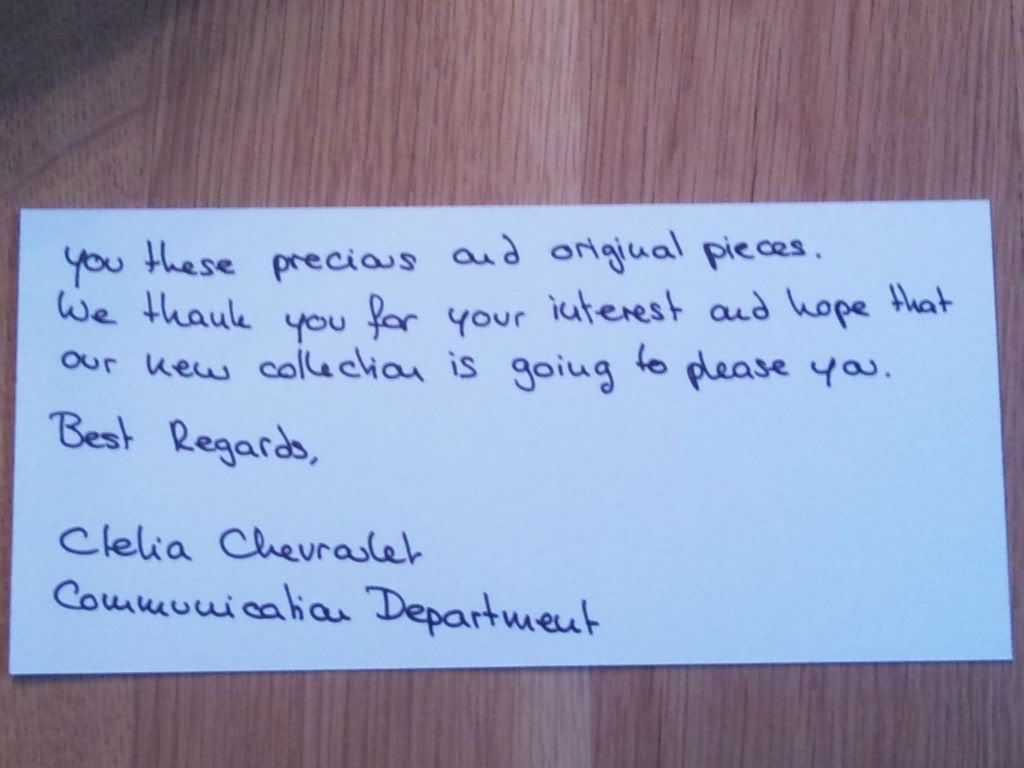 you these precious and original pieces.
We thank you for your interest and hope that
our new collection is going to please you.
Best Regards,
Clelia Chevralet
Communication Department